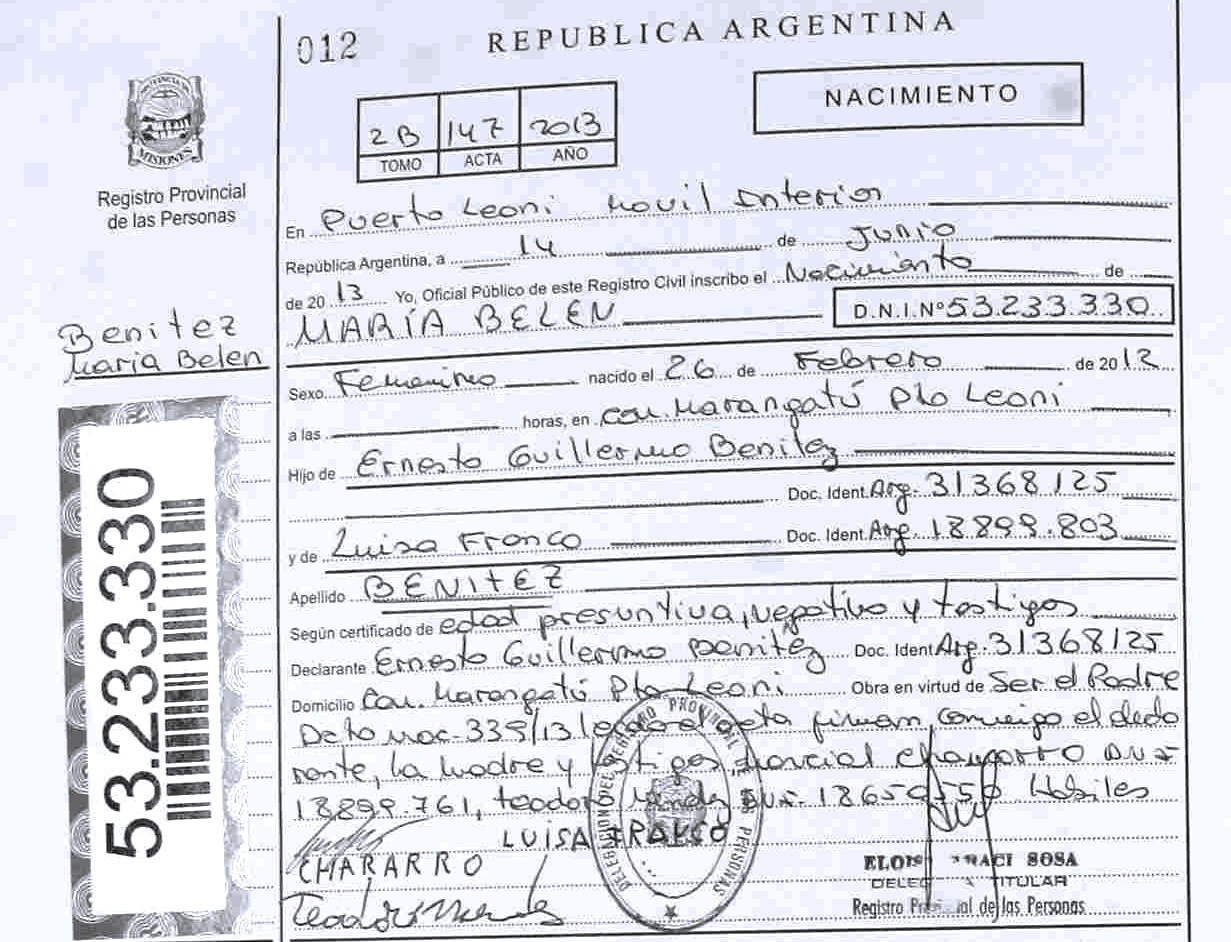 012
REPUBLICA ARGENTINA
PROVINCIA DE
MISIONES
Registro Provincial
de las Personas
2B 147 2013
TOMO ACTA AÑO
NACIMIENTO
En Puerto Leoni Movil Interior
República Argentina, a 14 de Junio
de 2013 Yo, Oficial Público de este Registro Civil inscribo el Nacimiento de
MARÍA BELEN D.N.I.Nº 53.233.330
Benitez
Maria Belen
Sexo Femenino nacido el 26 de Febrero de 2012
a las horas, en Com. Marangatú Pto Leoni
Hijo de Ernesto Guillermo Benitez
Doc. Ident. Arg. 31368125
y de Luisa Franco Doc. Ident. Arg. 18.899.803
Apellido BENITEZ
Según certificado de edad presuntiva, negativo y testigos
Declarante Ernesto Guillermo Benitez Doc. Ident Arg. 31368125
Domicilio Com. Marangatú Pto Leoni Obra en virtud de Ser el Padre
Dcto 335/13 leida el acta firman conmigo el decla
rante, la madre y testigos
18899.761, Teodoro Habiles
LUISA FRANCO
CHARARRO
53.233.330
SOSA
TITULAR
Registro de las Personas